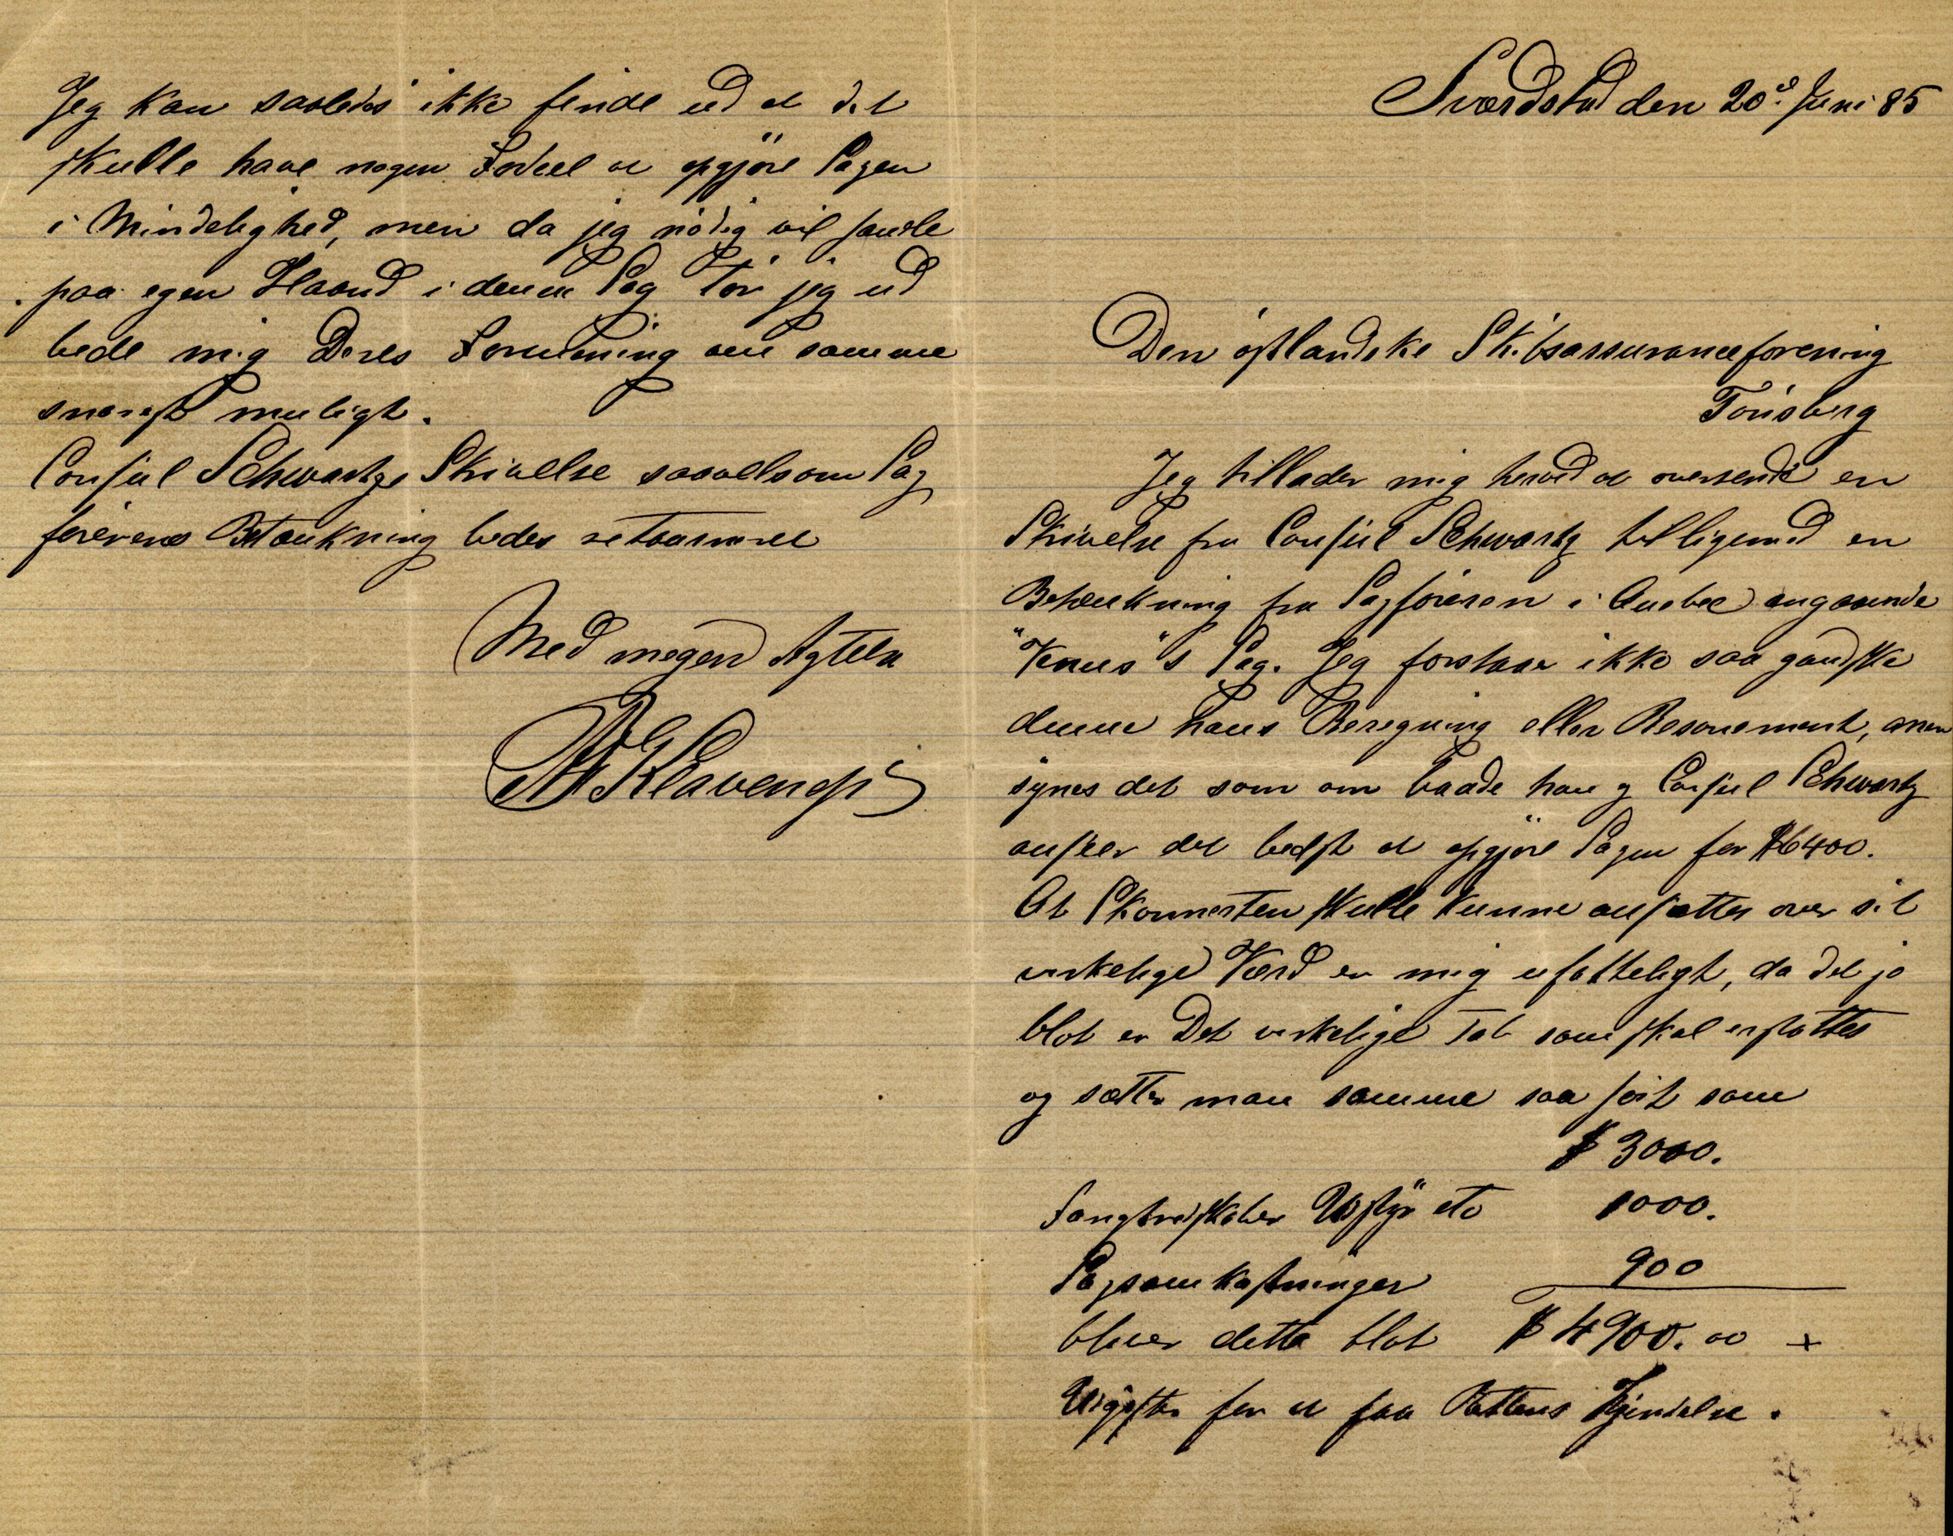 Sværdstad den 20d Juni 85
Den östlandske Skibsassuranceforening
Tönsberg
Jeg tillader mig herved at oversende en
Skrivelse fra Consul Schwartz tilligemed en
Betænkning fra Sagföreren i Quebec angaaende
"Venus"s Sag. Jeg forstaar ikke saa gandske
denne hans Beregning eller Resonement, men
synes det som om baade han og Consul Schwartz
anseer det bedst at opgjöre Sagen for $6400.
At Skonnerten skulle kunne ansættes over sit
virkelige Værd er mig ufatteligt, da det jo
blot er Det virkelige Tab som skal erstattes
og sætter man samme saa höit som
$ 3000.
Fangstredskaber Udstyr etc 1000.
Sagsomkostninger 900
bliver dette blot $ 4900.00 +
Udgifter for at faa Rettens Kjendelse.
Jeg kan saaledes ikke finde ud at det
skulle have nogen Fordeel at opgjöre Sagen
i Mindelighed, men da jeg nödig vil handle
paa egen Haand i denne Sag tör jeg ud
bede mig Deres Formening om samme
snarest muligt.
Consul Schwartzs Skrivelse saavelsom Sag
förerens Betænkning bedes retourneret
Med megen Agtelse
Klavenæs